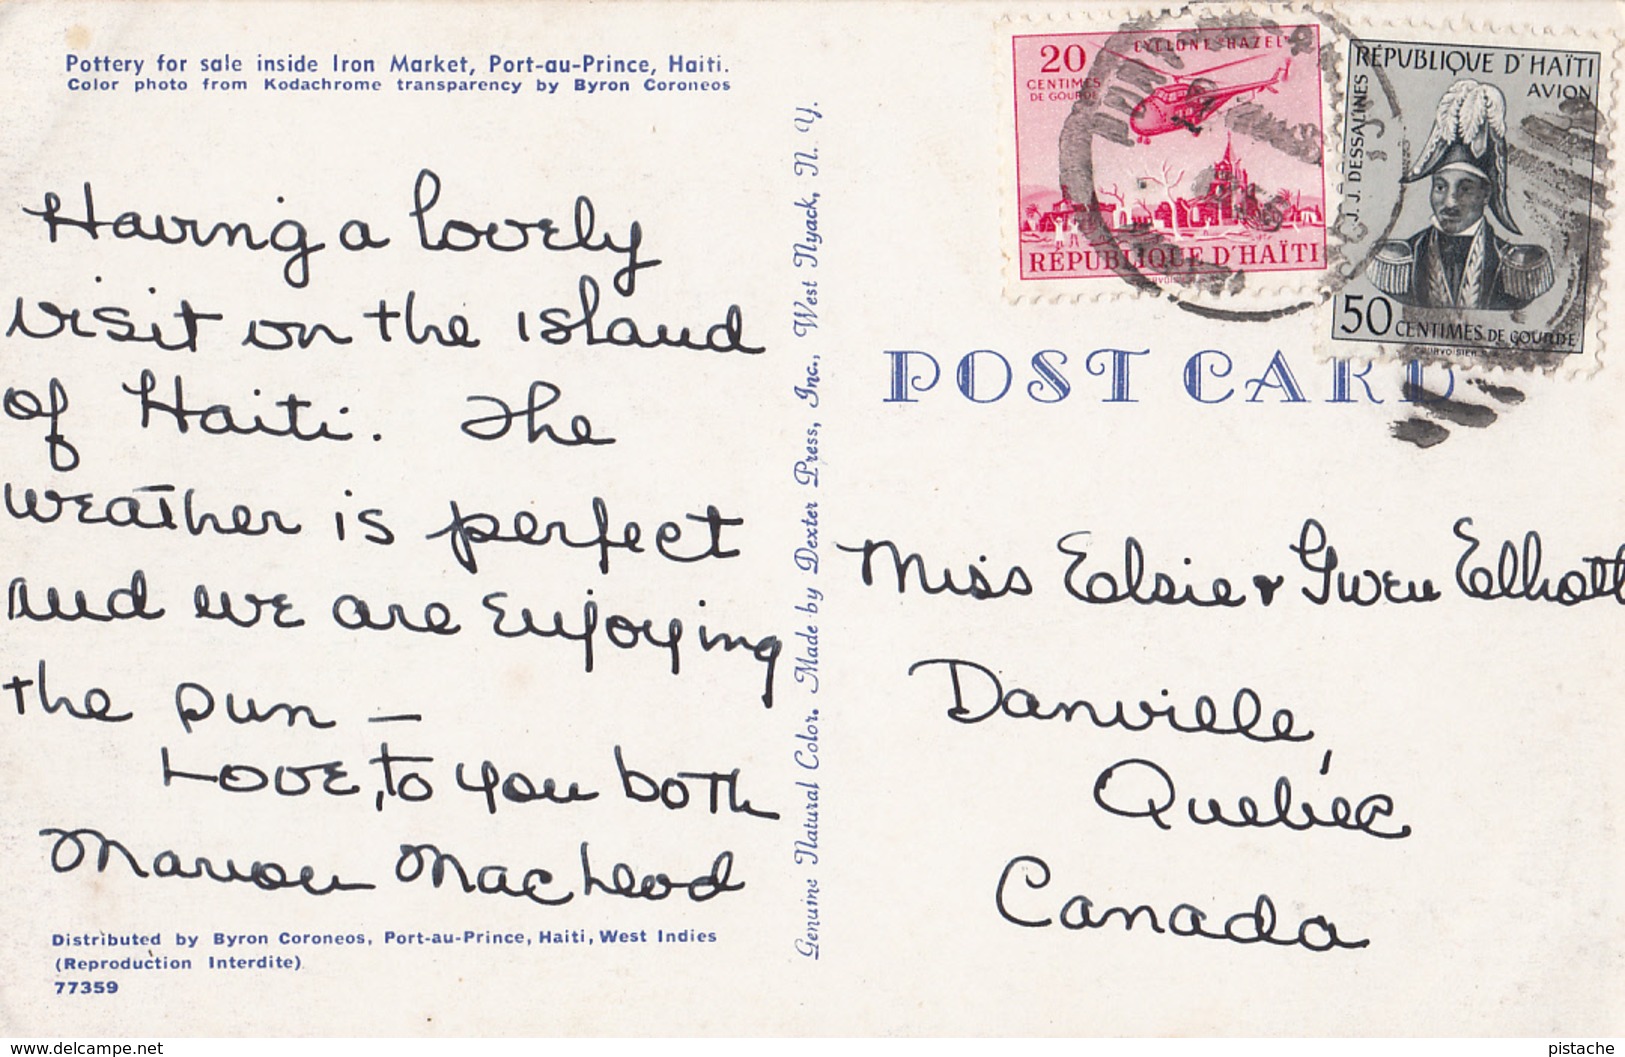 Pottery for sale inside Iron Market, Port-au-Prince, Haiti.
Color photo from Kodachrome transparency by Byron Coroneos
Having a lovely
visit on the island
of Haiti. The
weather is perfect
and we are enjoying
the sun —
Love, to you both
Marion MacLeod
Distributed by Byron Coroneos, Port-au-Prince, Haiti, West Indies
(Reproduction Interdite)
77359
Genuine Natural Color. Made by Dexter Press, Inc., West Nyack, N. Y.
CYCLONE "HAZEL"
20
CENTIMES
DE GOURDE
RÉPUBLIQUE D'HAÏTI
RÉPUBLIQUE D'HAÏTI
AVION
J. J. DESSALINES
50 CENTIMES DE GOURDE
COURVOISIER S.A.
POST CARD
Miss Elsie & Gwen Elliott
Danville,
Quebec
Canada
www.delcampe.net/en/store/com
pistache